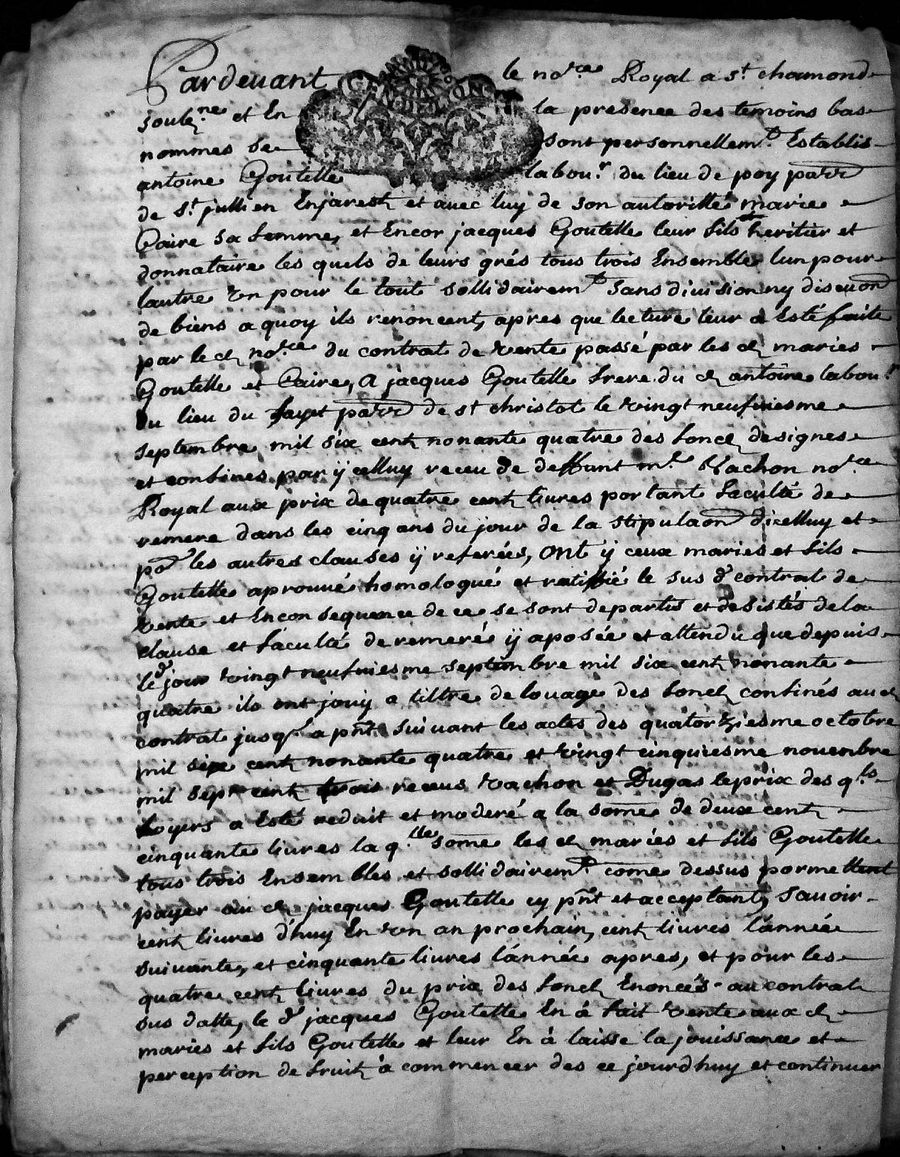 Pardevant le no.re Royal a s.t chamond
soub.ne et En la presence des temoins bas
nommes se sont personnellem.t Establis
antoine Goutelle labou.r du lieu de poy parr
de s.t jullien Enjarest et avec luy de son autoritté marie
Paire sa femme, et Encor jacques Goutelle leur fils heritier et
donnataire les quels de leurs grés tous trois Ensemble lun pour
lautre Un pour le tout sollidairem.t sans division ny discuon
de biens a quoy ils renoncent, apres que lecture leur a Esté faite
par le d no.re du contrat de vente passé par les d maries
Goutelle et Paire, A jacques Goutelle frere du d antoine labou.r
du lieu du fayet parr de st christot le vingt neufviesme
septembre mil six cent nonante quatre des fonds designes
et confines par ÿ celluy receu de deffunt m.e Vachon no.re
Royal aux prix de quatre cent livres portant faculté de
remere dans les cinq ans du jour de la stipulaon dicelluy et
p.r les autres clauses ÿ referées, ont ÿ ceux maries et fils
Goutelle aprouvé homologué et ratiffié le sus d. contrat de
vente et En consequence de ce se sont departis et desistés de la
clause et faculté de remeré ÿ aposée et attendu que depuis
led. jour vingt neufviesme septembre mil six cent nonante
quatre ils ont jouy a tiltre de louage des fonds confinés au d
contrat jusq. a pnt suivant les actes des quatorziesme octobre
mil six cent nonante quatre et vingt cinquiesme novembre
mil sept cent trois receus Vachon et Dugas le prix des q.ls
Loyers a Esté reduit et moderé a la some de deux cent
cinquante livres la q.lle some les d mariés et fils Goutelle
tous trois Ensembles et sollidairem.t come dessus promettent
payer au d jacques Goutelle cy pnt et acceptant, savoir
cent livres d'huy En Un an prochain, cent livres lannée
suivante, et cinquante livres lannée apres, et pour les
quatre cent livres du prix des fonds Enoncés au contrat
sus datte, le d. jacques Goutelle En à fait vente aux d
maries et fils Goutelle et leur En à laisse la jouissance et
perception de fruit à commencer des ce jourdhuy et continuer